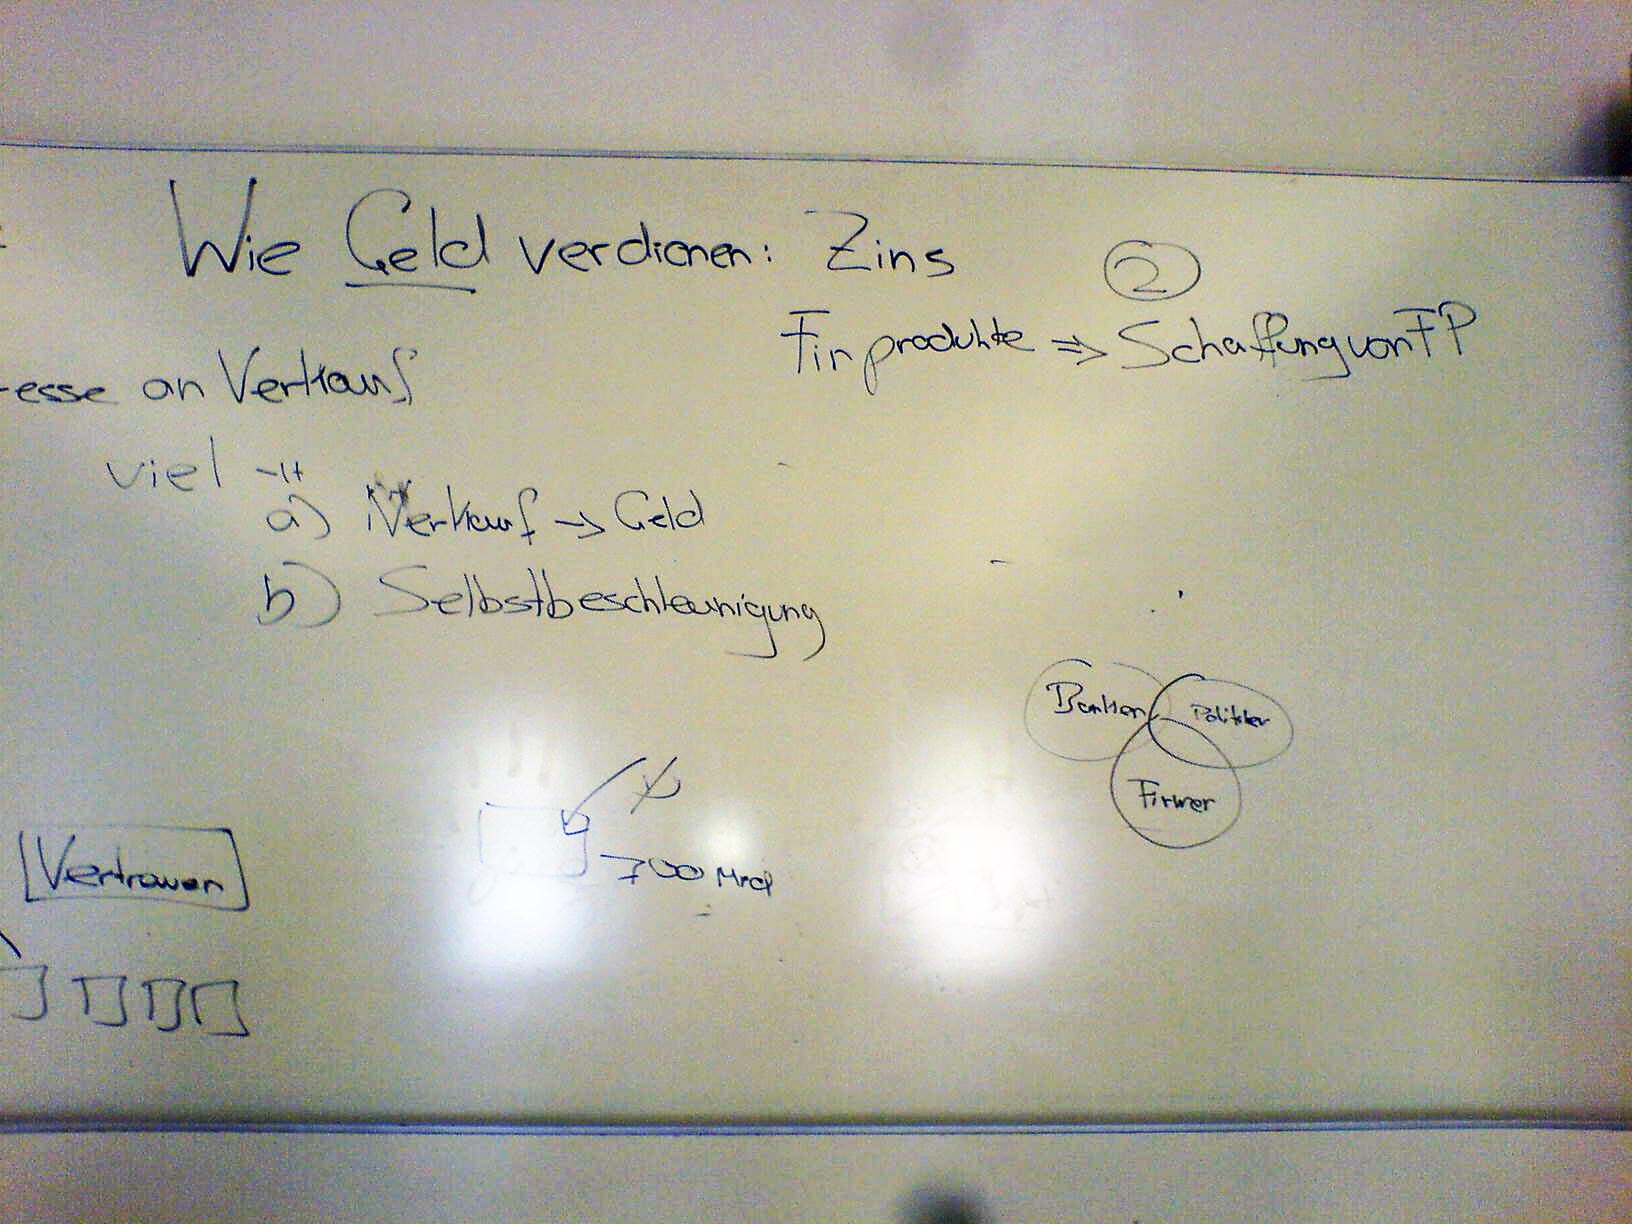 Wie Geld verdienen: Zins
2
Finprodukte => Schaffung von FP
esse an Verkauf
viel
a) Verkauf -> Geld
b) Selbstbeschleunigung
Banken
Politiker
Firmen
700 Mrd
Vertrauen